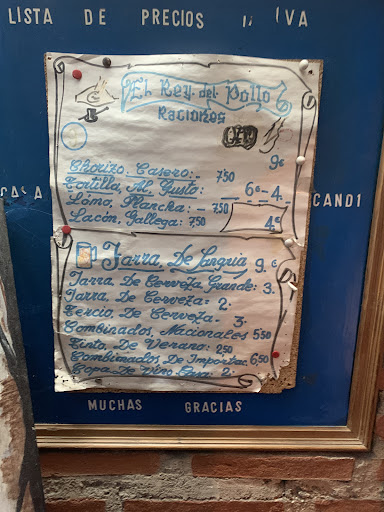 LISTA DE PRECIOS IVA
El Rey del Pollo
Raciones
9€
Chorizo, Casero:- 7,50
Tortilla, Al Gusto:- 6- 4.
Lomo, Plancha:- 7,50
Lacón, Gallega: 7,50 4€
CASA
CANDI
Jarra De Sangria 9.€
Jarra De Cerveza Grande: 3.
Jarra, De Cerveza:- 2.
Tercio De Cerveza- 3.
Combinados, Nacionales 5,50
Tinto, De Verano: 2,50
Combinados De Importac. 6,50
Copa De Vino 2.
MUCHAS GRACIAS